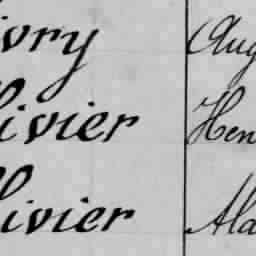 ivry Aug
livier Hen
livier Ala